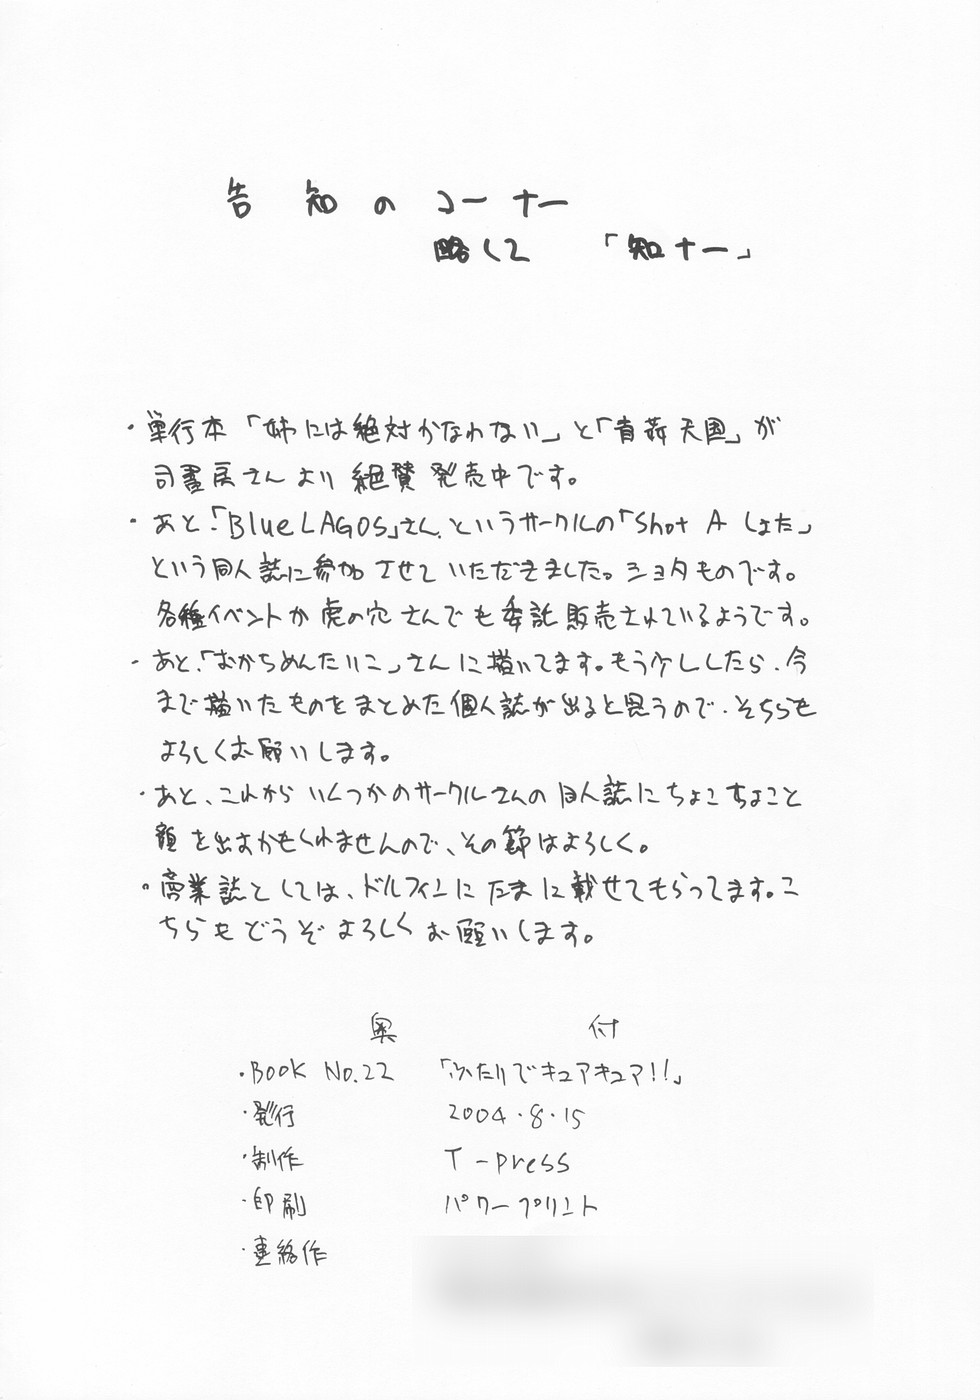 告知のコーナー
略して 「知ナー」
・単行本「姉には絶対かなわない」と「盲姦天国」が
司書房さんより絶賛発売中です。
・あと、「Blue LAGOS」さん、というサークルの「Shot A しょた」
という同人誌に参加させていただきました。ショタものです。
各種イベントか虎の穴さんでも委託販売されているようです。
・あと、「おかちめんたいこ」さんに描いてます。もう少ししたら、今
まで描いたものをまとめた個人誌が出ると思うので、そちらも
よろしくお願いします。
・あと、これからいくつかのサークルさんの同人誌にちょこちょこと
顔を出すかもしれませんので、その節はよろしく。
・商業誌としては、ドルフィンにたまに載せてもらってます。こ
ちらもどうぞよろしくお願いします。
奥 付
・BOOK No.22 「ふたりでキュアキュア!!」
・発行 2004・8・15
・制作 T-press
・印刷 パワープリント
・連絡作